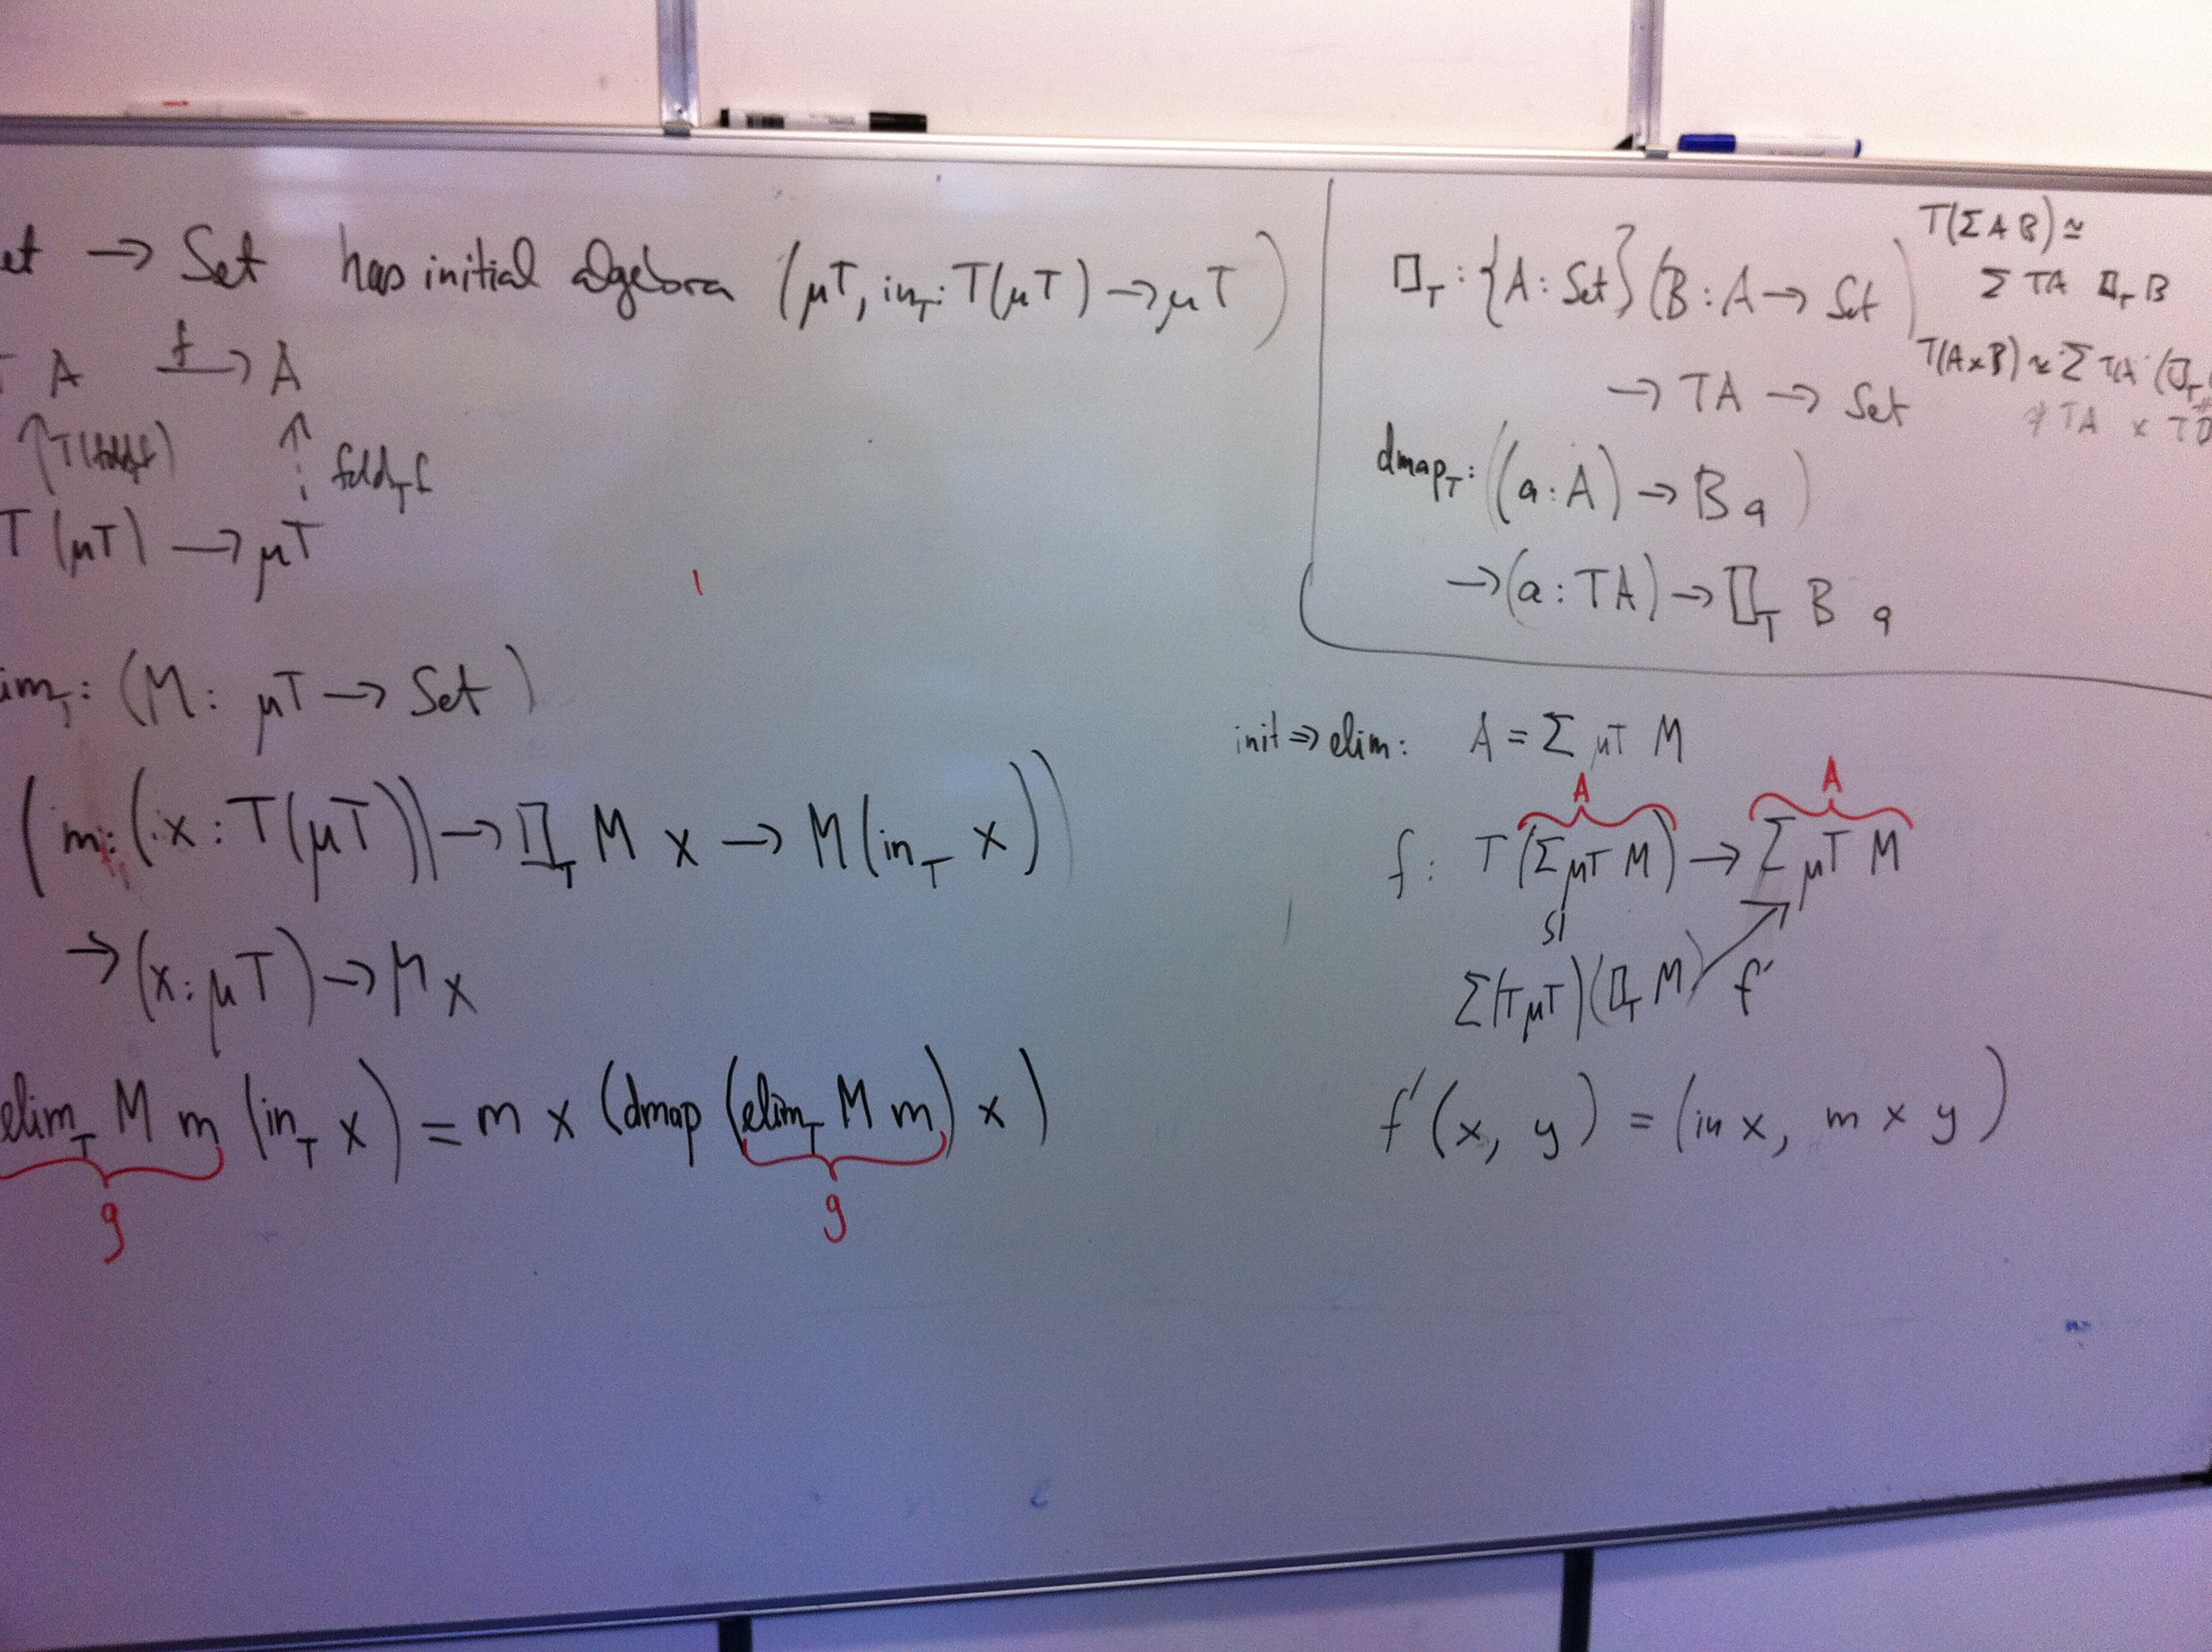 et → Set has initial algebra (μT, in_T : T(μT) → μT)
T A —f→ A
↑ T(fold f) ↑ fold_T f
T(μT) → μT
im_T : (M : μT → Set)
(m : (x : T(μT)) → □_T M x → M(in_T x))
→ (x : μT) → M x
elim_T M m (in_T x) = m x (dmap (elim_T M m) x)
g g
□_T : {A : Set} (B : A → Set)
→ TA → Set
T(Σ A B) ≃
Σ TA □_T B
T(A×B) ≃ Σ TA (□_T
≠ TA × T
dmap_T : ((a : A) → B a)
→ (a : TA) → □_T B a
init ⇒ elim: A = Σ μT M
A A
f : T(Σ μT M) → Σ μT M
S|
Σ(T μT)(□_T M) f'
f'(x, y) = (in x, m x y)